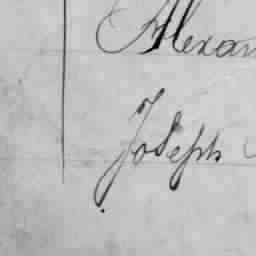 Alexan
Joseph